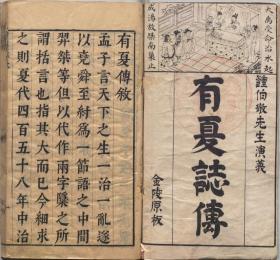 禹受命治水起
成湯放桀南巢止
鍾伯敬先生演義
有夏誌傳
金陵原板
有夏傳敘
孟子言天下之生一治一亂遂
以堯舜至紂爲一節語之中間
羿桀等但以代作兩字檃之所
謂括言也指其大而已今細求
之則夏代四百五十八年中治